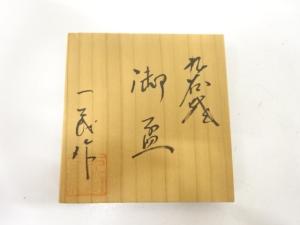 九谷焼
御盃
一茂作